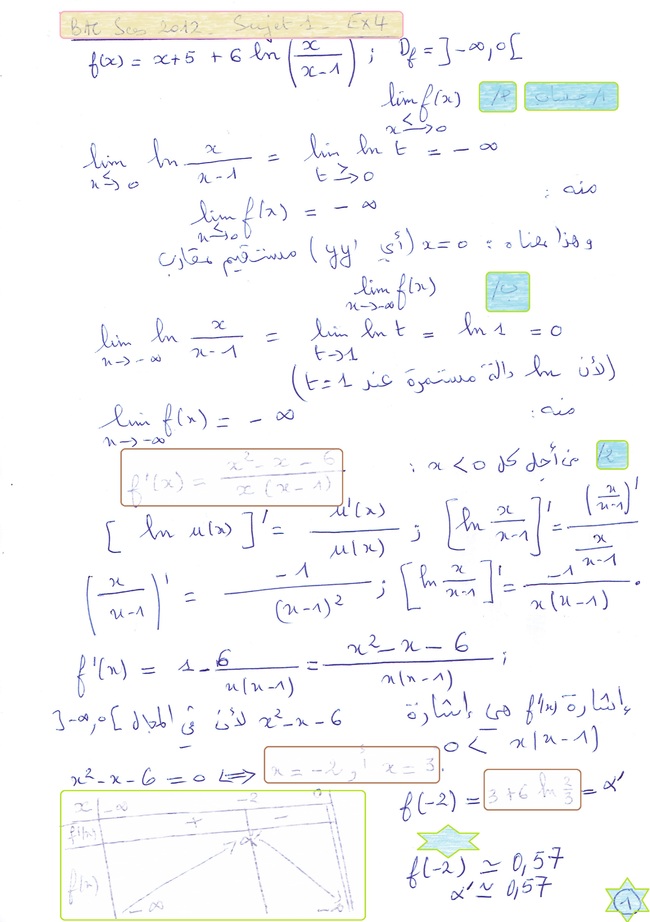 BAC Sces 2012. Sujet 1 - Ex 4
f(x) = x+5 + 6 ln(x/(x-1)) ; Df = ]-∞,0[
1/ حساب P/ lim f(x) x→<0
lim x→<0 ln x/(x-1) = lim t→>0 ln t = -∞
منه :
lim x→<0 f(x) = -∞
وهذا معناه : x=0 (أي yy') مستقيم مقارب
lim x→-∞ f(x)
lim x→-∞ ln x/(x-1) = lim t→1 ln t = ln 1 = 0
(لأن ln دالة مستمرة عند t=1)
منه :
lim x→-∞ f(x) = -∞
2/ من أجل كل x<0 :
f'(x) = (x²-x-6)/(x(x-1))
[ln u(x)]' = u'(x)/u(x) ; [ln x/(x-1)]' = (x/(x-1))'/(x/(x-1))
(x/(x-1))' = -1/(x-1)² ; [ln x/(x-1)]' = -1/(x(x-1)) .
f'(x) = 1 - 6/(x(x-1)) = (x²-x-6)/(x(x-1)) ;
إشارة f'(x) هي إشارة x²-x-6 لأن في المجال ]-∞,0[
0 < x(x-1)
x²-x-6=0 ⟺ x=-2 , x=3 .
f(-2) = 3+6 ln 2/3 = α'
x -∞ -2 0
f'(x) + -
f(x) -∞ α' -∞
f(-2) ≃ 0,57
α' ≃ 0,57
1